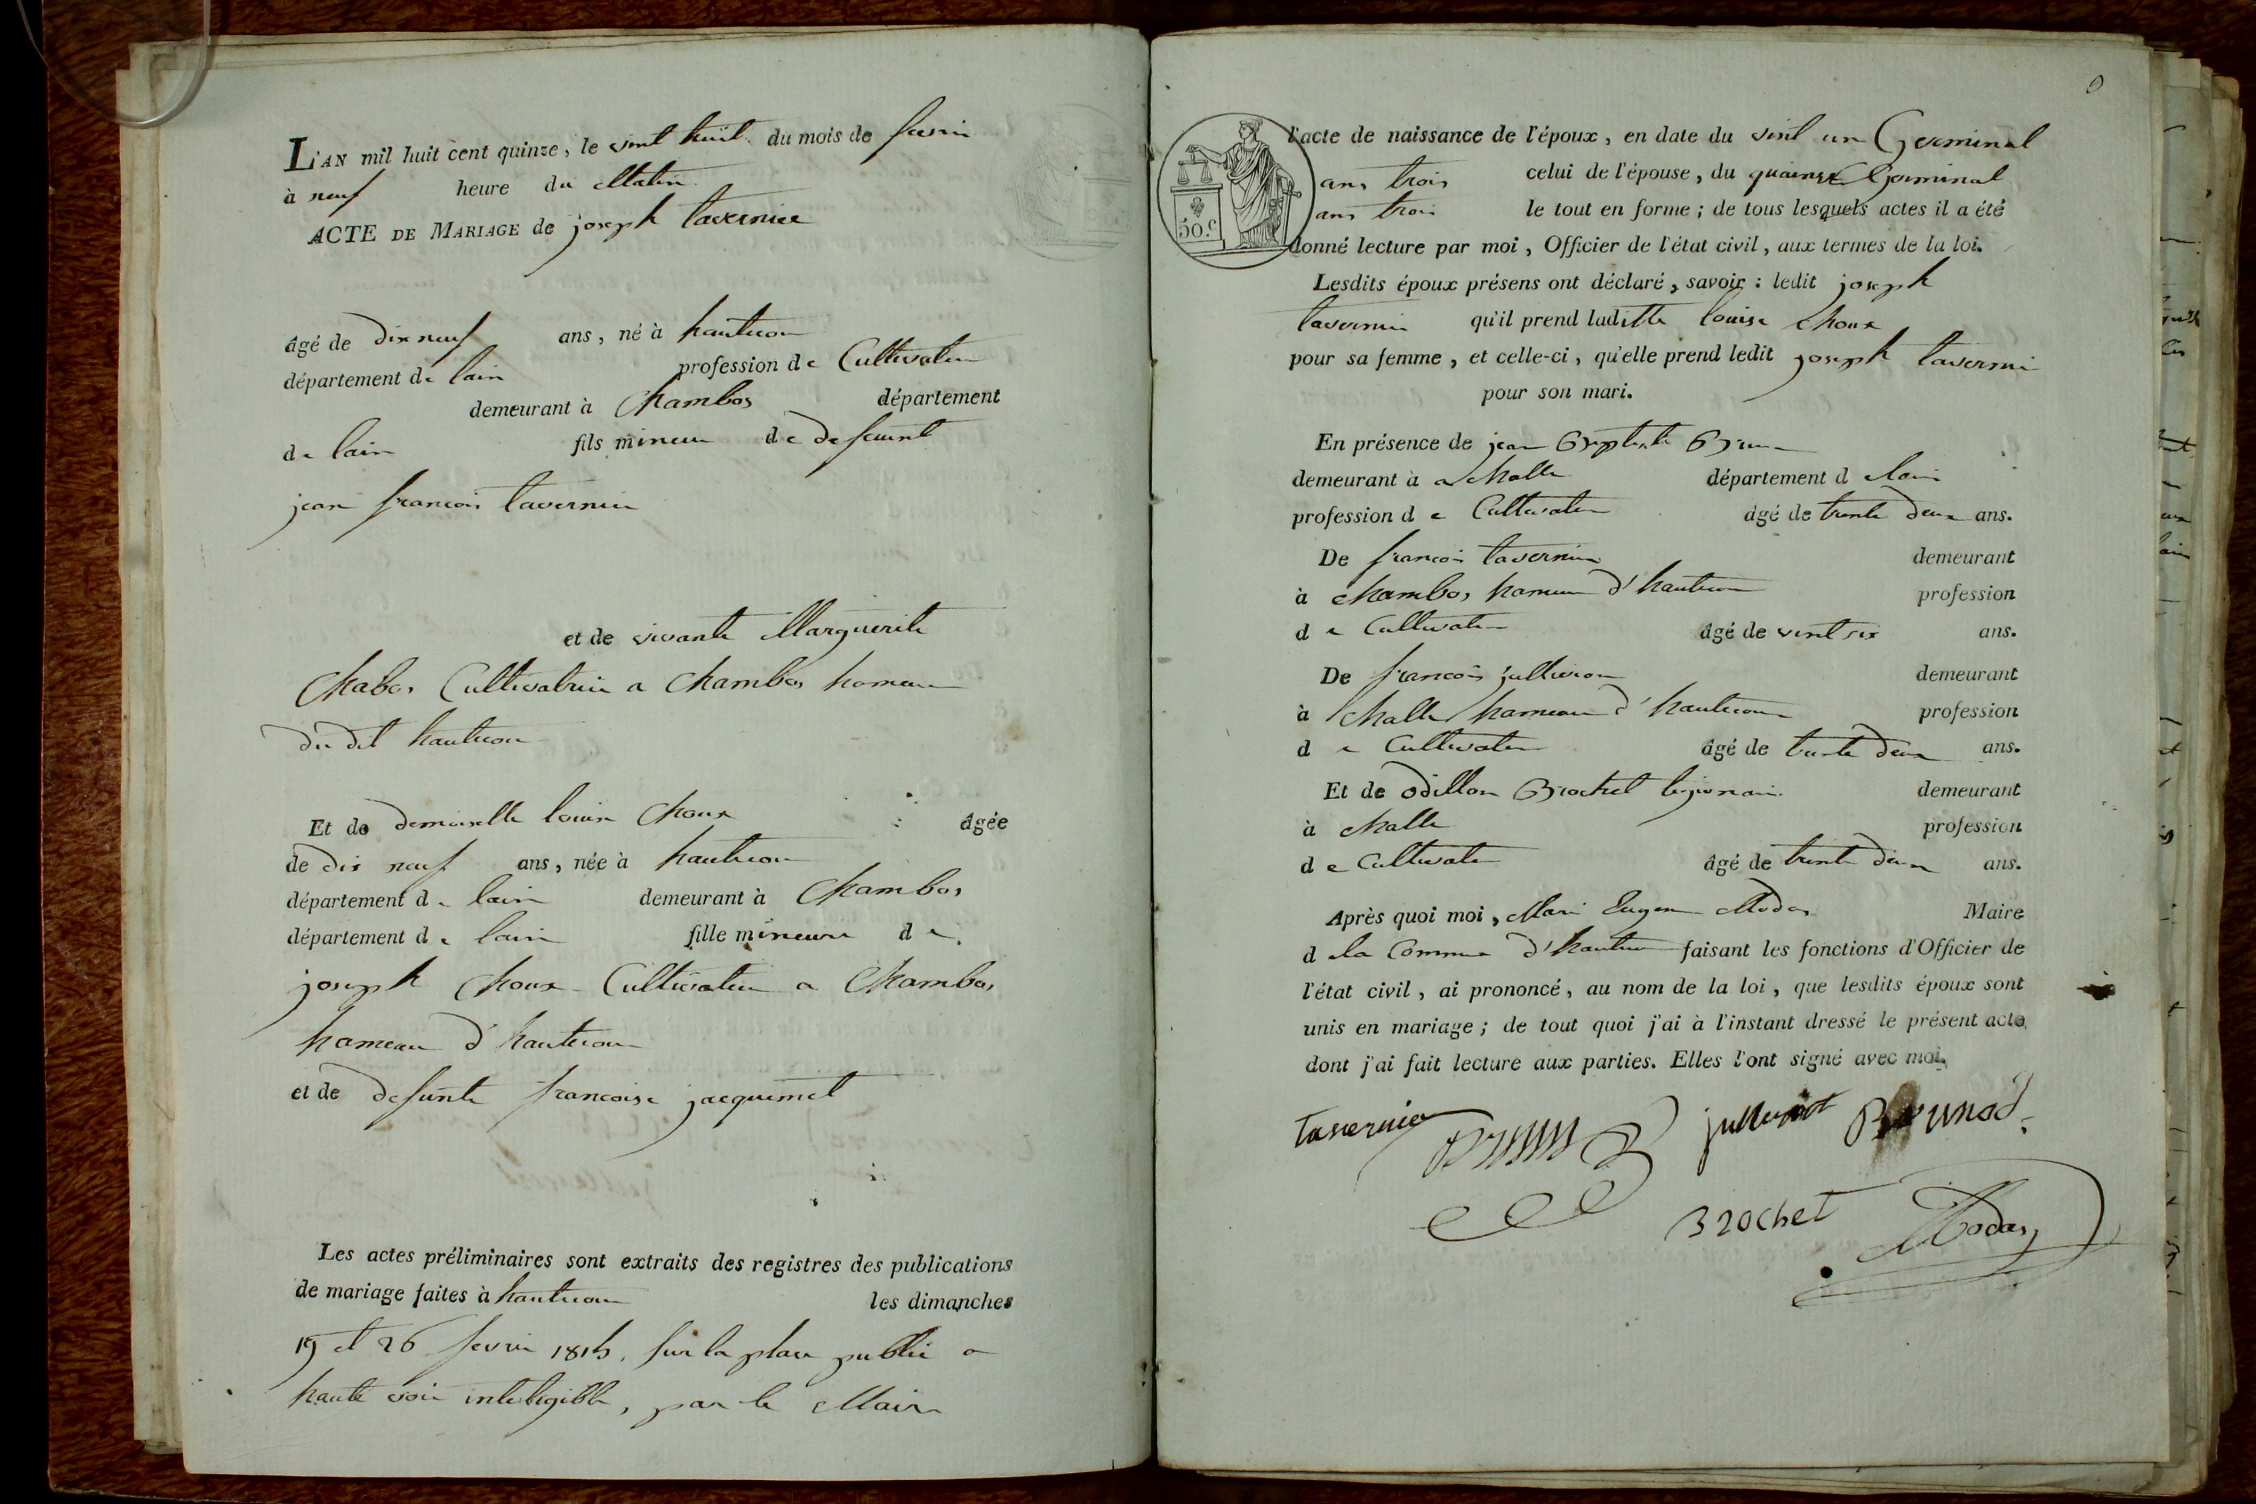 L'AN mil huit cent quinze, le vint huit du mois de fevrie
à neuf heure du Matin
ACTE DE MARIAGE de joseph tavernier
âgé de dix neuf ans, né à hautecour
département de lain profession de Cultivateur
demeurant à Chambos département
de lain fils mineur de defeunt
jean francois tavernier
et de vivante Marguerite
Chabos Cultivatrice a Chambos hameau
du dit hautecour
Et de demoiselle louise Choux âgée
de dix neuf ans, née à hautecour
département de lain demeurant à Chambos
département de lain fille mineure de
joseph Choux Cultivateur a Chambos
hameau d'hautecour
et de defunte francoise jacquemet
Les actes préliminaires sont extraits des registres des publications
de mariage faites à hautecour les dimanches
19 et 26 fevrier 1815. sur la place public a
haute voix inteligible, par le Maire
50.c
l'acte de naissance de l'époux, en date du vint un Germinal
ans trois celui de l'épouse, du quainze Germinal
ans trois le tout en forme; de tous lesquels actes il a été
donné lecture par moi, Officier de l'état civil, aux termes de la loi.
Lesdits époux présens ont déclaré, savoir: ledit joseph
tavernier qu'il prend laditte louise Choux
pour sa femme, et celle-ci, qu'elle prend ledit joseph tavernier
pour son mari.
En présence de jean Baptiste Brun
demeurant à Challe département de lain
profession de Cultivateur âgé de trente deux ans.
De francois tavernier demeurant
à Chambos hameau d'hautecour profession
de Cultivateur âgé de vint six ans.
De francois jullieron demeurant
à Challe hameau d'hautecour profession
de Cultivateur âgé de trente deux ans.
Et de odillon Brochet demeurant
à Challe profession
de Cultivateur âgé de trente deux ans.
Après quoi moi, Mari Eugene Modas Maire
de la Commune d'hautecour faisant les fonctions d'Officier de
l'état civil, ai prononcé, au nom de la loi, que lesdits époux sont
unis en mariage; de tout quoi j'ai à l'instant dressé le présent acte
dont j'ai fait lecture aux parties. Elles l'ont signé avec moi.
tavernier
Brochet Modas